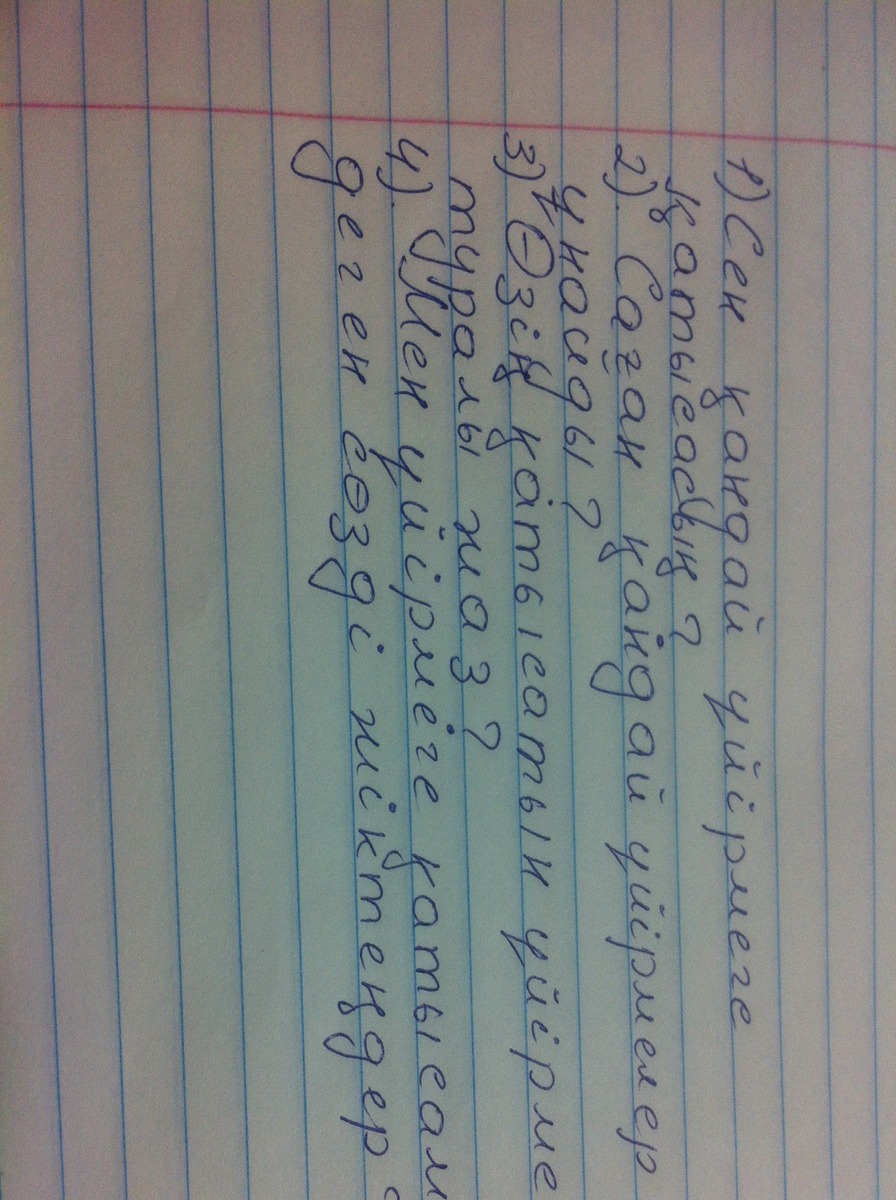 1) Сен қандай үйірмеге
қатысасың?
2). Саған қандай үйірмелер
ұнайды?
3) Өзің қатысатын үйірме
туралы жаз?
4). Мен үйірмеге қатысам
деген сөзді жіктеңдер